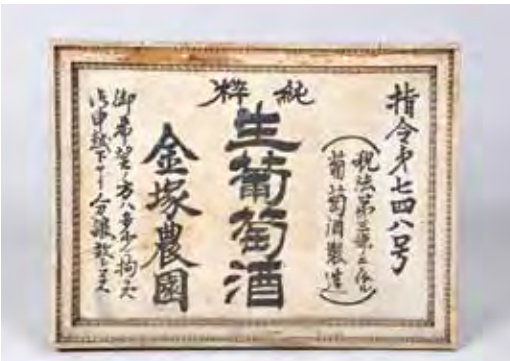 指令第七四八号
(税法第三条ニ依ル
葡萄酒製造)
純粋
生葡萄酒
金塚農園
御希望ノ方ハ多少ニ拘ラズ
御申越下サレ分譲致シマス